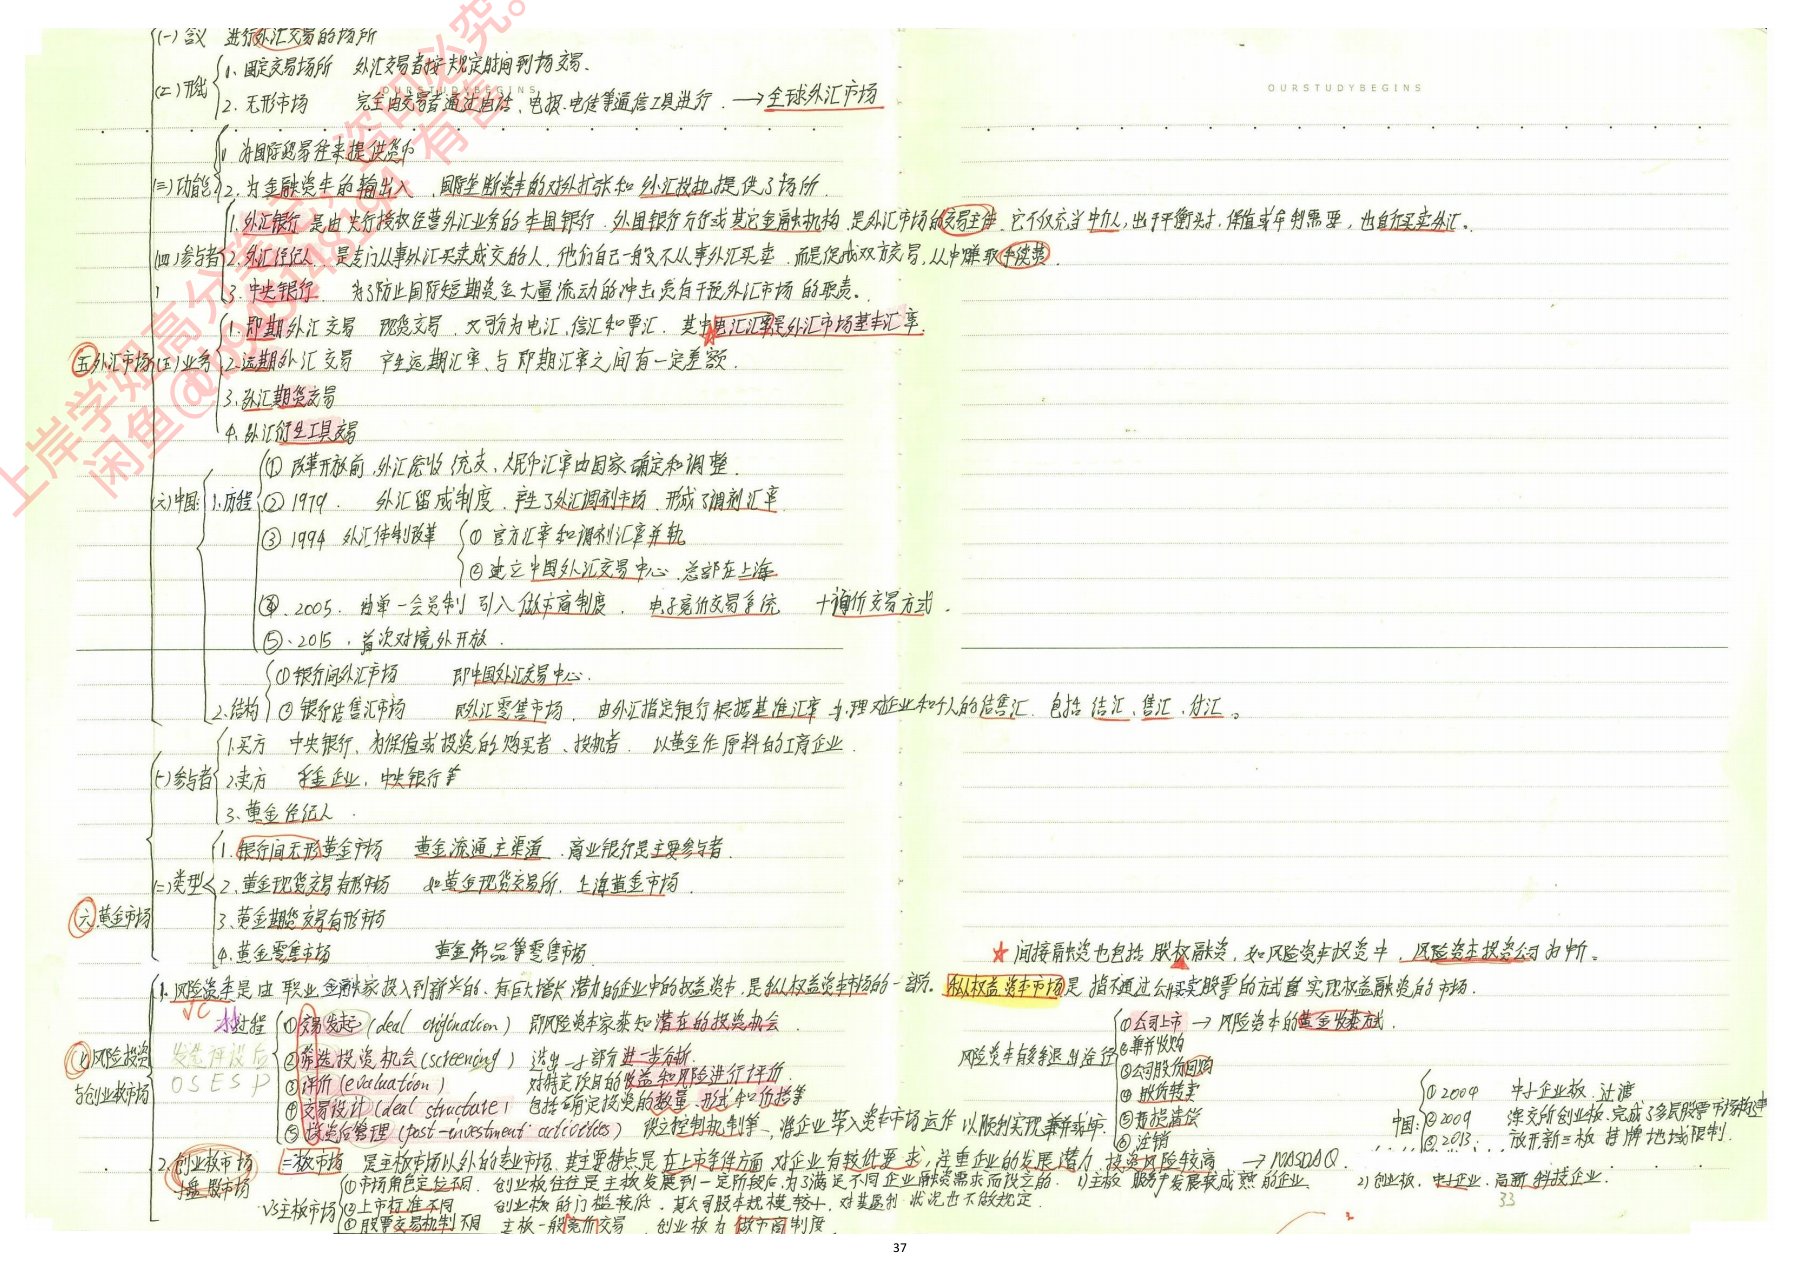 (一)含义 进行外汇交易的场所
(二)形式
1. 固定交易场所 外汇交易者按规定时间到场交易.
OURSTUDYBEGINS
OURSTUDYBEGINS
2. 无形市场 完全由交易者通过电话、电报、电传等通信工具进行. → 全球外汇市场
1. 为国际贸易往来提供货币
(三)功能 2. 为金融资本的输出入、国际垄断资本的对外扩张和外汇投机提供了场所.
1. 外汇银行 是由央行授权经营外汇业务的本国银行、外国银行分行或其它金融机构, 是外汇市场的交易主体. 它不仅充当中介人, 出于平衡头寸、保值或牟利需要, 也自行买卖外汇。
(四)参与者 2. 外汇经纪人. 是专门从事外汇买卖成交的人, 他们自己一般不从事外汇买卖, 而是促成双方交易, 从中赚取手续费.
3. 中央银行. 为了防止国际短期资金大量流动的冲击负有干预外汇市场的职责。
1. 即期外汇交易 现货交易. 又可分为电汇、信汇和票汇. 其中电汇汇率是外汇市场基本汇率.
五 外汇市场 (五)业务 2. 远期外汇交易 产生远期汇率、与即期汇率之间有一定差额.
3. 外汇期货交易
4. 外汇衍生工具交易
① 改革开放前. 外汇统收统支、人民币汇率由国家确定和调整.
(六)中国: 1. 历程 ② 1979. 外汇留成制度. 产生了外汇调剂市场. 形成了调剂汇率
③ 1994 外汇体制改革 ① 官方汇率和调剂汇率并轨
② 建立中国外汇交易中心. 总部在上海
④. 2005. 由单一会员制 引入做市商制度. 电子竞价交易系统 + 询价交易方式.
⑤. 2015. 首次对境外开放.
① 银行间外汇市场 即中国外汇交易中心.
2. 结构 ② 银行结售汇市场 即外汇零售市场. 由外汇指定银行根据基准汇率办理对企业和个人的结售汇. 包括 结汇、售汇、付汇。
1. 买方 中央银行、为保值或投资的购买者、投机者. 以黄金作原料的工商企业.
(一)参与者 2. 卖方 采金企业, 中央银行等
3. 黄金经纪人.
1. 银行间无形黄金市场 黄金流通主渠道. 商业银行是主要参与者.
(二)类型 2. 黄金现货交易有形市场 如黄金现货交易所. 上海黄金市场.
六 黄金市场 3. 黄金期货交易有形市场
4. 黄金零售市场 黄金饰品等零售市场.
★ 间接融资也包括股权融资, 如风险资本投资中. 风险资本投资公司为中介。
1. 风险资本是由职业金融家投入到新兴的、有巨大增长潜力的企业中的权益资本, 是私人权益资本市场的一部分。 私人权益资本市场是指不通过公开买卖股票的方式实现权益融资的市场.
VC
过程 ① 交易发起 (deal origination) 即风险资本家获知潜在的投资机会.
七 风险投资与创业板市场
发选评设后
OSESP
② 筛选投资机会 (screening) 选出一小部分进一步分析.
③ 评价 (evaluation) 对特定项目的收益和风险进行评价.
④ 交易设计 (deal structure) 包括确定投资的数量、形式和价格等
⑤ 投资后管理 (post-investment activities) 设立控制机制等, 将企业带入资本市场运作以顺利实现兼并或上市.
风险资本有多种退出途径
① 公司上市 → 风险资本的黄金收获方式.
② 兼并收购
③ 公司股份回购
④ 股权转卖
⑤ 亏损清偿
⑥ 注销
中国: ① 2004 中小企业板. 过渡
② 2009 深交所创业板. 完成了多层股票市场构建
③ 2013. 放开新三板 挂牌地域限制.
2. 创业板市场 二板市场 是主板市场以外的专业市场. 其主要特点是在上市条件方面对企业有较低要求, 注重企业的发展潜力. 投资风险较高 → NASDAQ.
vs主板市场 ① 市场角色定位不同. 创业板往往是主板发展到一定阶段后, 为了满足不同企业融资需求而设立的. 1) 主板 服务于发展较成熟的企业 2) 创业板. 中小企业. 高新科技企业.
② 上市标准不同 创业板的门槛较低. 其公司股本规模较小. 对其盈利状况也不做规定.
③ 股票交易机制不同 主板一般竞价交易. 创业板为做市商制度.
33
37
上岸学姐高分笔记 盗印必究。